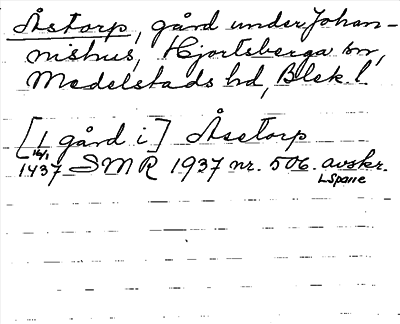 Åstorp, gård under Johan-
nishus, Hjortsberga sn,
Medelstads hd, Blek. l.
[1 gård i] Åsetorp
16/1
1437 SMR 1937 nr. 506. avskr.
L Spane